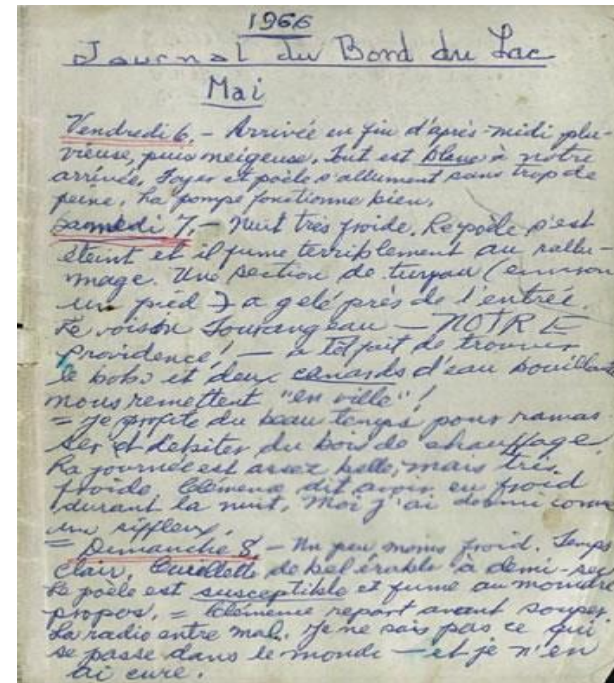 1966
Journal du Bord du Lac
Mai
Vendredi 6, - Arrivée en fin d'après-midi plu-
vieuse, puis neigeuse. Tout est blanc à notre
arrivée. Foyer et poêle s'allument sans trop de
peine. La pompe fonctionne bien.
Samedi 7, - Nuit très froide. Le poêle s'est
éteint et il fume terriblement au rallu-
mage. Une section de tuyau (environ
un pied) a gelé près de l'entrée.
Le voisin Tourangeau - NOTRE
Providence! - a tôt fait de trouver
le bobo et deux canards d'eau bouillante
nous remettent "en ville"!
= Je profite du beau temps pour ramas
ser et débiter du bois de chauffage.
La journée est assez belle, mais très
froide. Clémence dit avoir eu froid
durant la nuit. Moi j'ai dormi comme
un siffleux.
= Dimanche 8, - Un peu moins froid. Temps
clair. Cueillette de bel érable à demi-sec
Le poêle est susceptible et fume au moindre
propos. = Clémence repart avant souper.
La radio entre mal. Je ne sais pas ce qui
se passe dans le monde - et je n'en
ai cure.